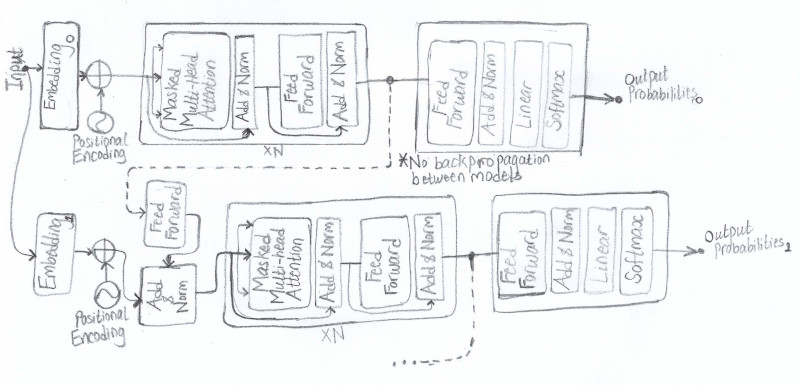 Input
Embedding0
Positional
Encoding
Masked
Multi-Head
Attention
Add & Norm
Feed
Forward
Add & Norm
xN
Feed
Forward
Add & Norm
Linear
Softmax
Output
Probabilities0
*No backpropagation
between models
Embedding
Positional
Encoding
Feed
Forward
Add &
Norm
Masked
Multi-head
Attention
Add & Norm
Feed
Forward
Add & Norm
xN
Feed
Forward
Add & Norm
Linear
Softmax
Output
Probabilities1